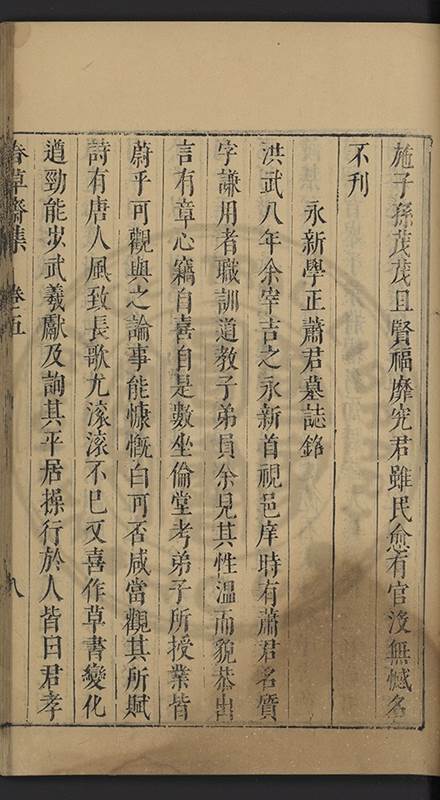 施子孫茂茂且賢福靡究君雖民愈有官沒無憾名
不刊
永新學正蕭君墓誌銘
洪武八年余宰吉之永新首視邑庠時有蕭君名質
字謙用者職訓道教子弟員余見其性溫而貌恭出
言有章心竊自喜自是數坐倫堂考弟子所授業皆
蔚乎可觀與之論事能慷慨白可否咸當觀其所賦
詩有唐人風致長歌尤滾滾不已又喜作草書變化
遒勁能步武羲獻及詢其平居操行於人皆曰君孝
春草齋集 卷五 九